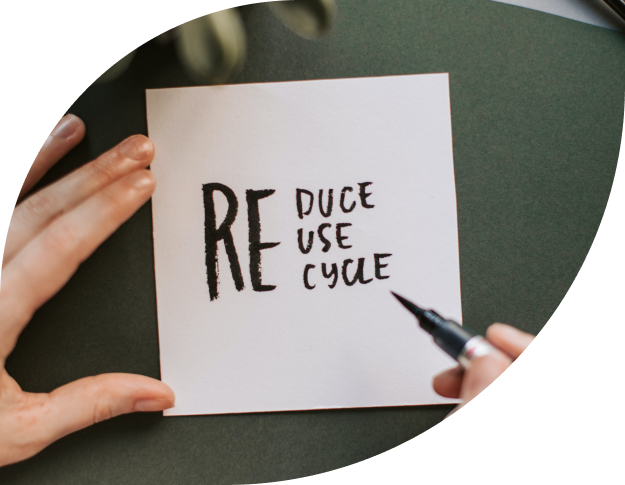 RE
DUCE
USE
CYCLE